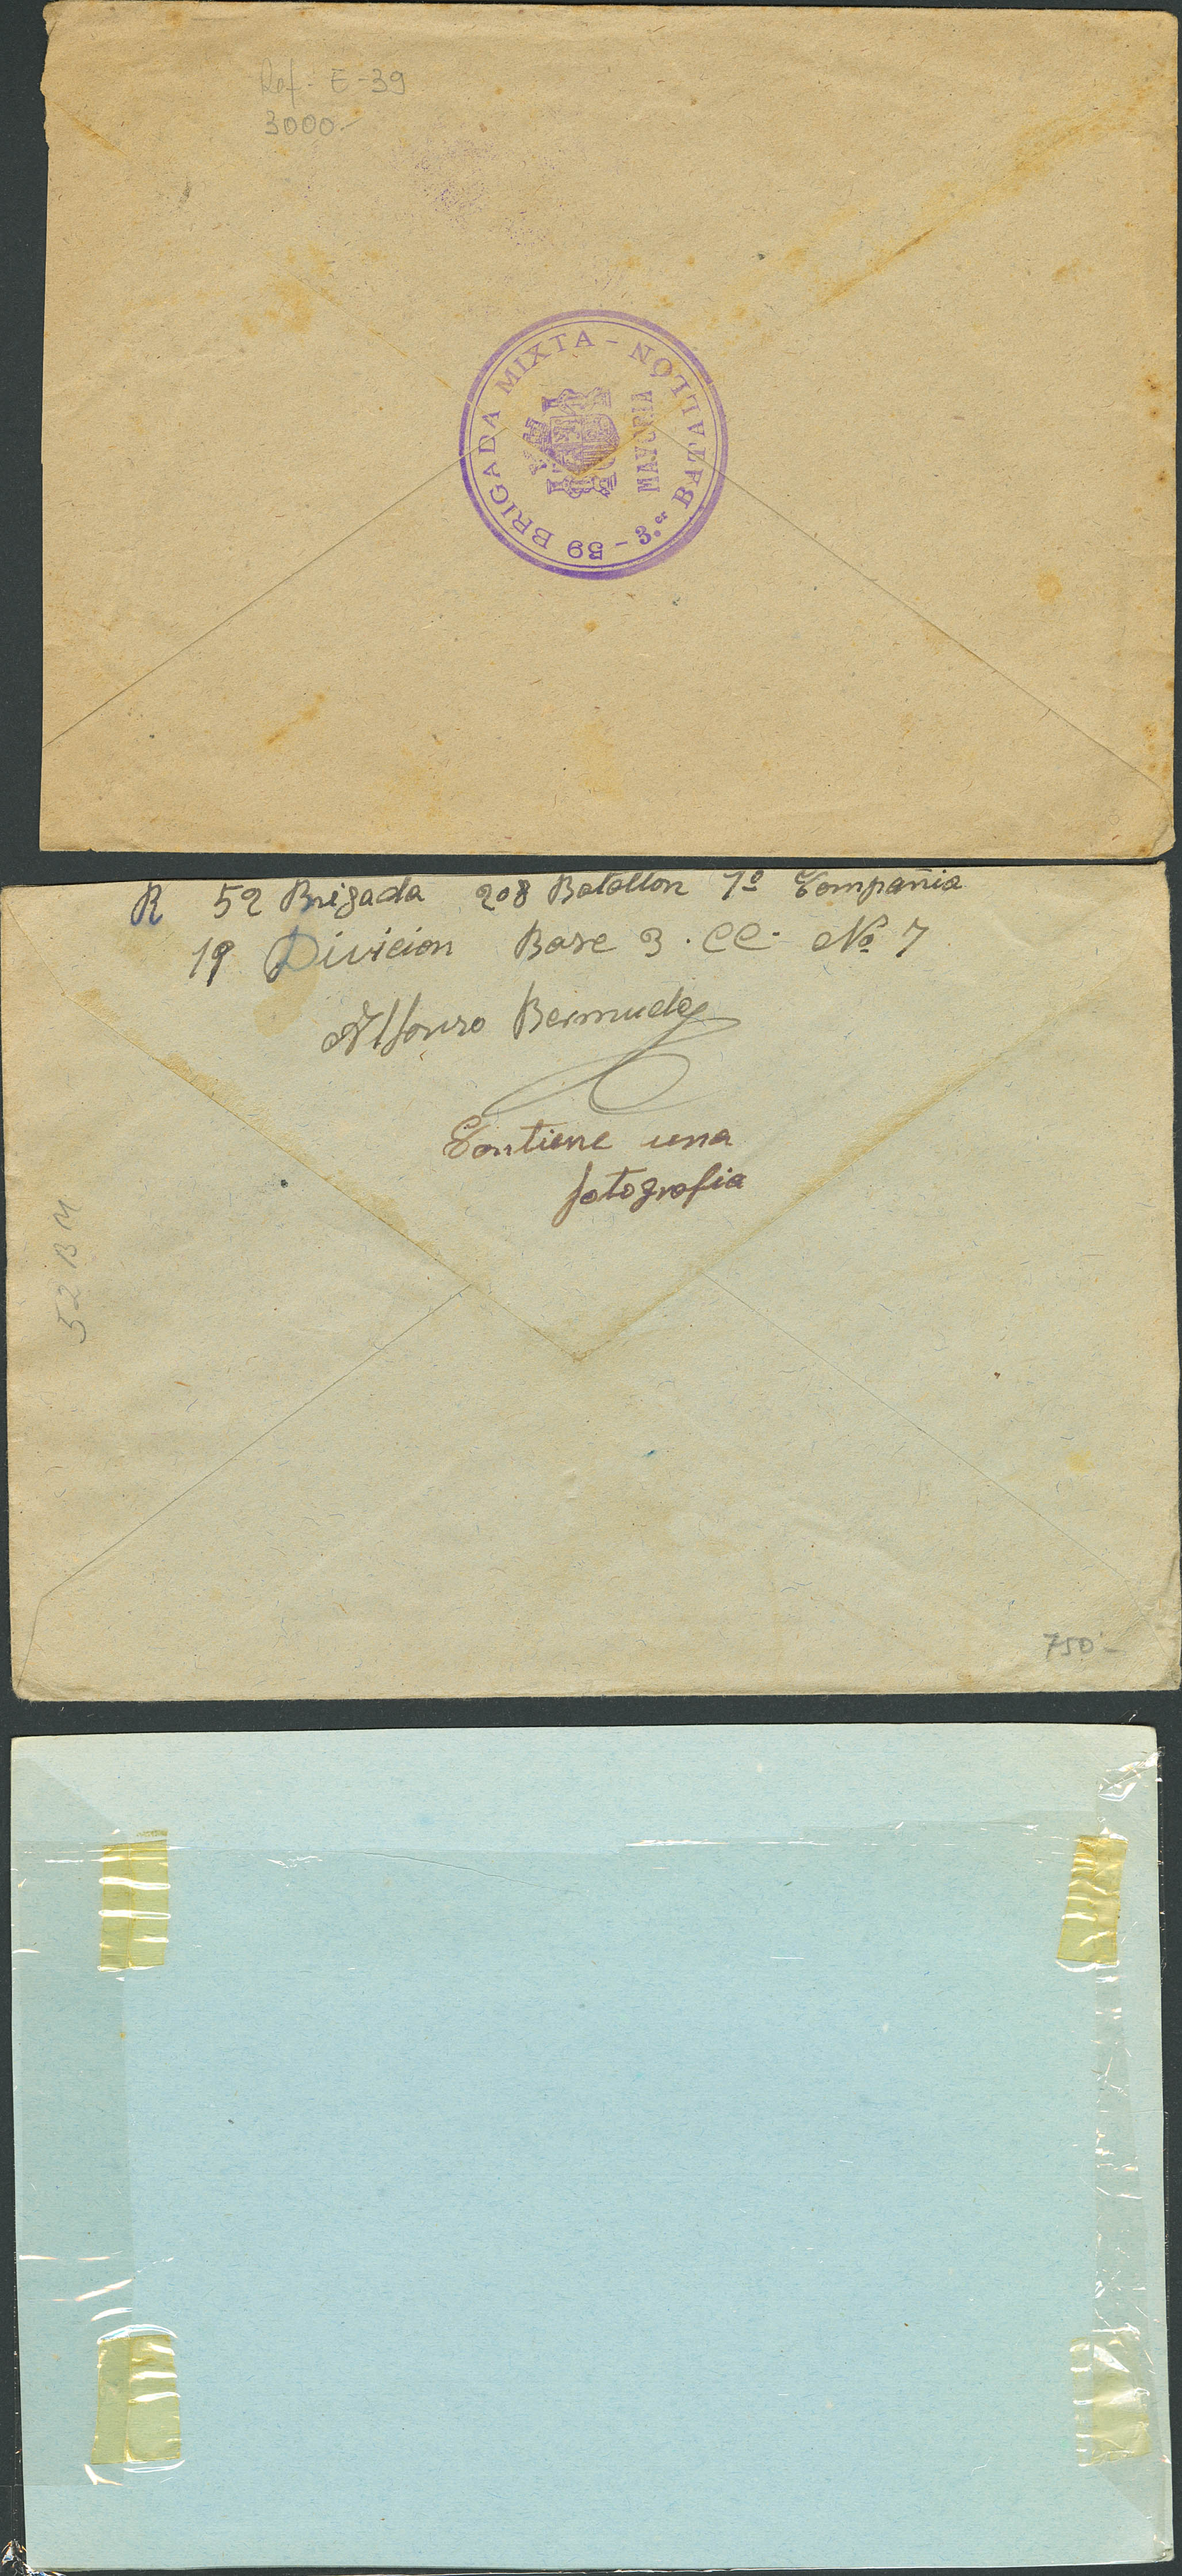 Ref. E-39
3000-
59 BRIGADA MIXTA - 3.er BATALLÓN
MAYORIA
R 52 Brigada 208 Batallon 1º Compañia
19 Division Base 3. CC. Nº 7
Alfonso Bermudez
Contiene una
fotografia
52 BM
750-